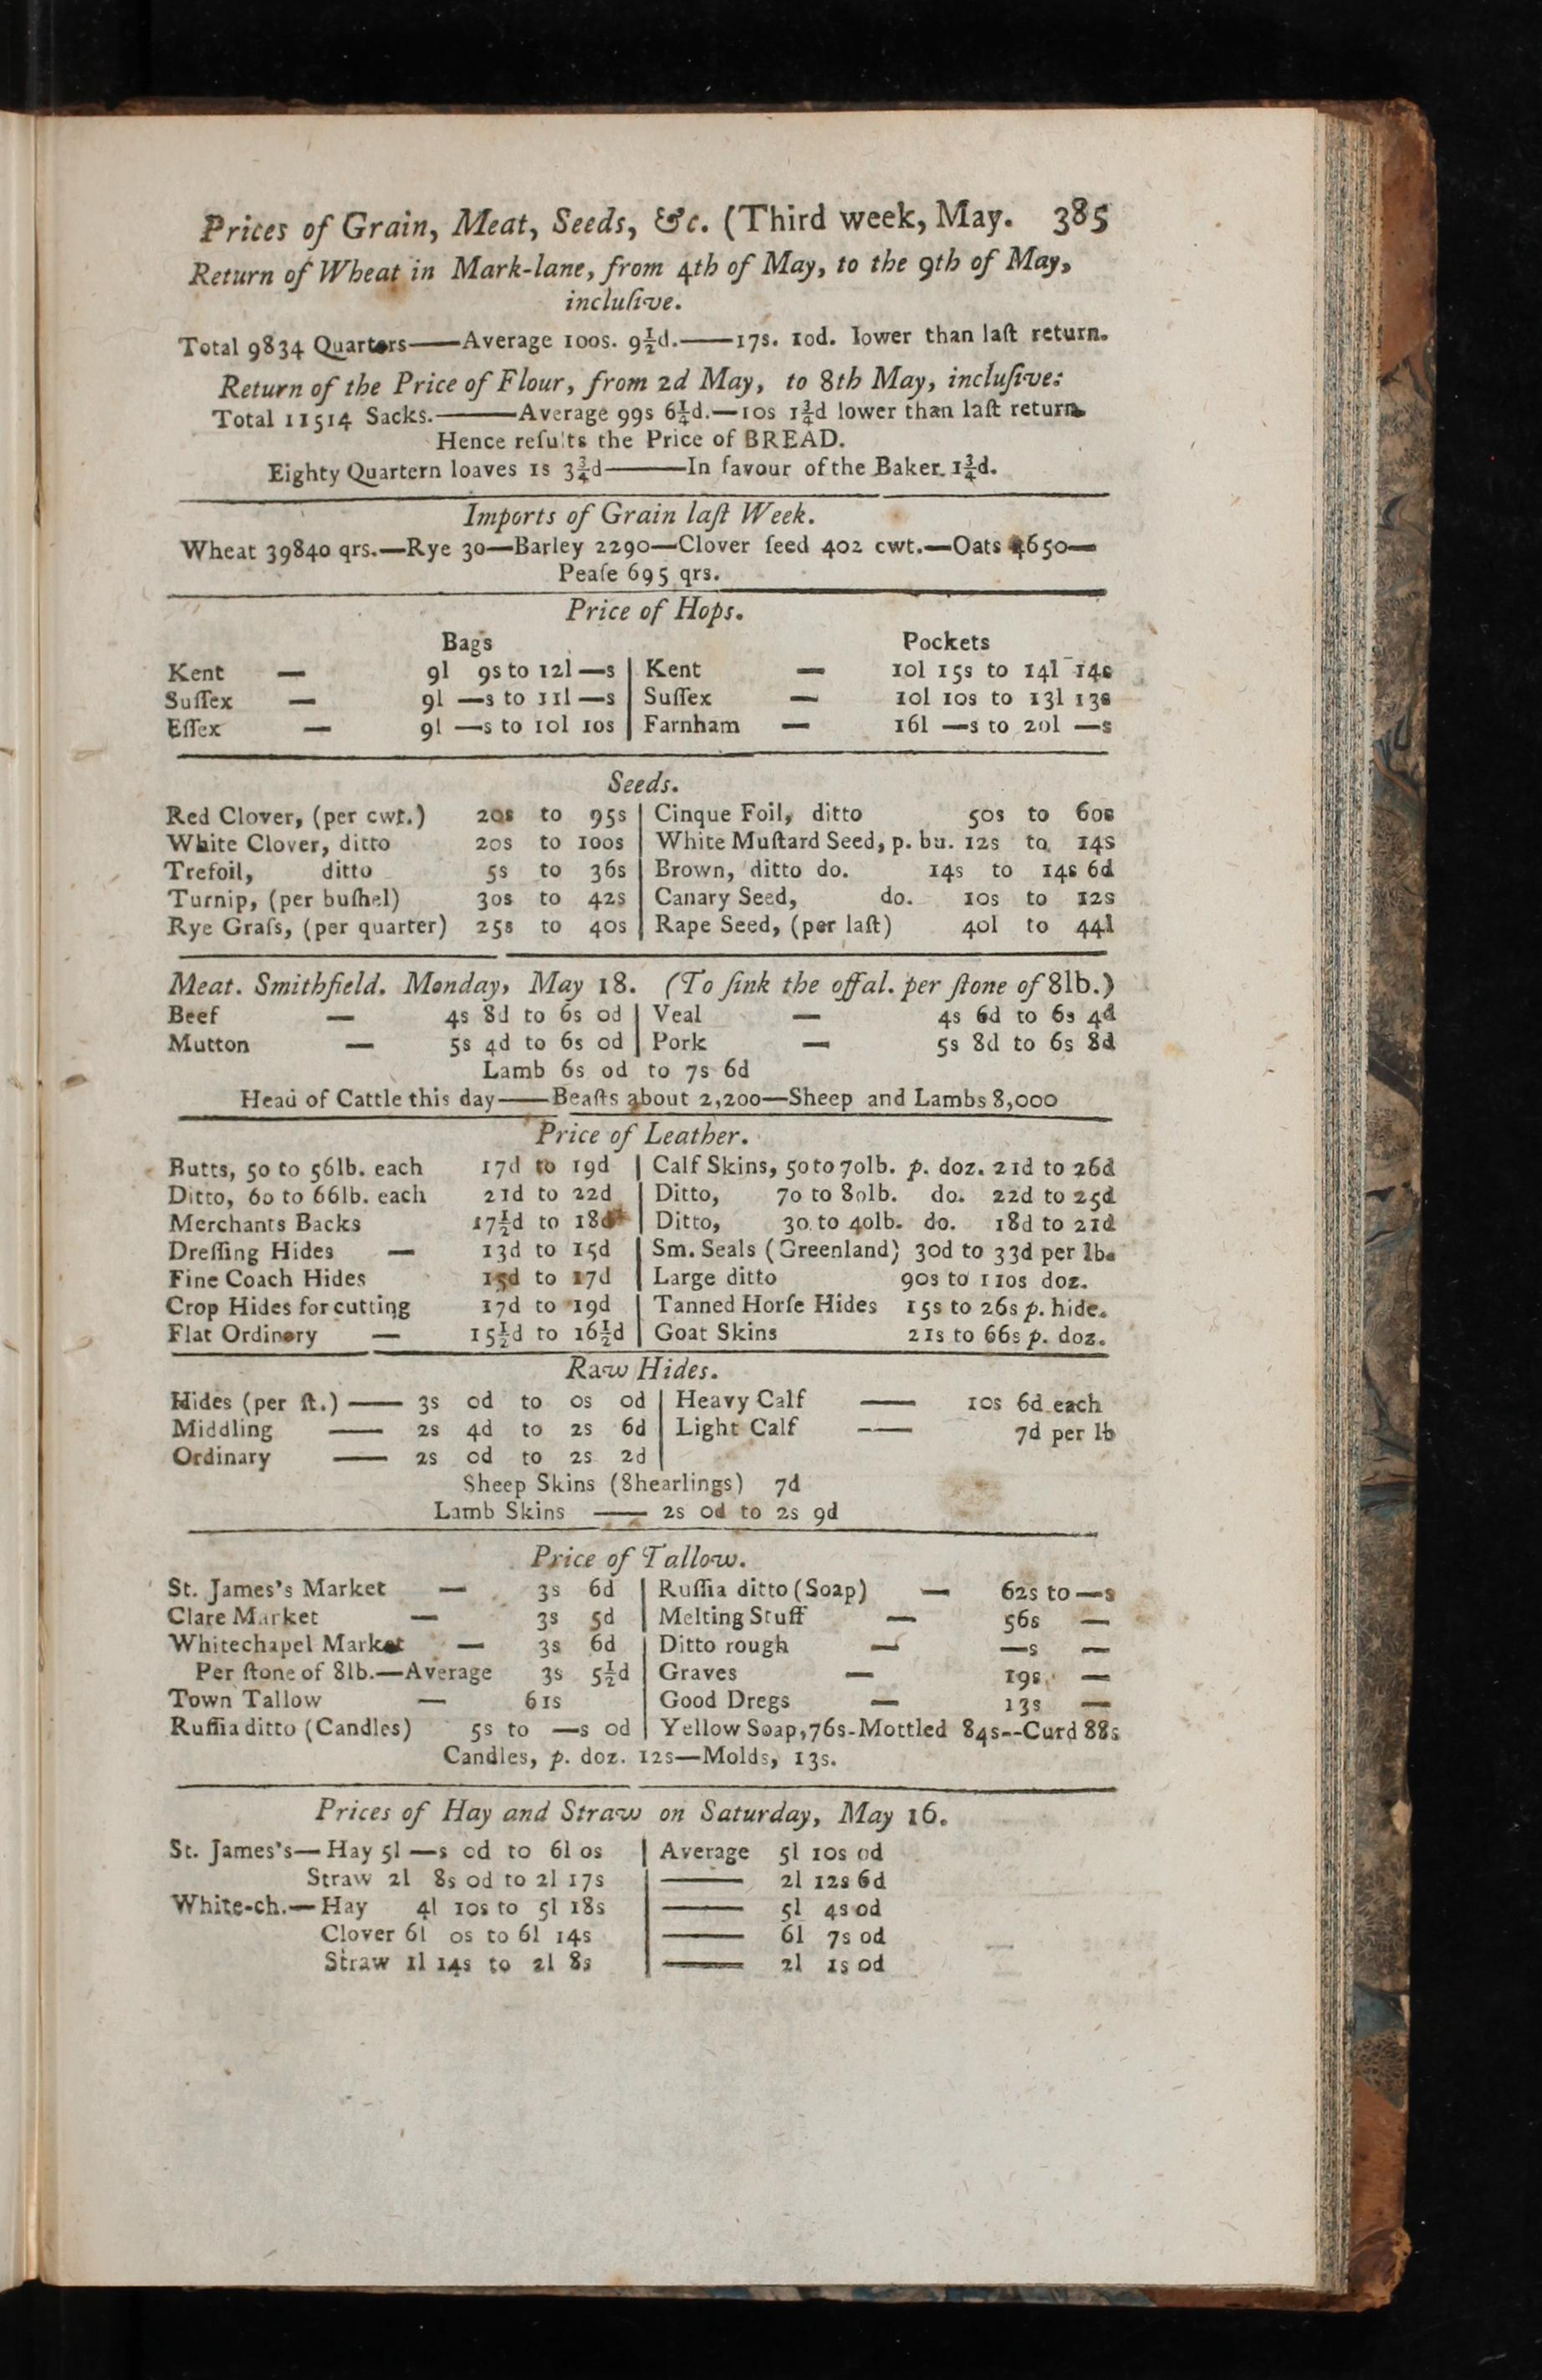 Prices of Grain, Meat, Seeds, &c. (Third week, May. 385
Return of Wheat in Mark-lane, from 4th of May, to the 9th of May,
incluſive.
Total 9834 Quarters——Average 100s. 9½d.——17s. 10d. lower than laſt return.
Return of the Price of Flour, from 2d May, to 8th May, incluſive:
Total 11514 Sacks.———Average 99s 6½d.—10s 1¾d lower than laſt return.
Hence reſults the Price of BREAD.
Eighty Quartern loaves 1s 3¾d———In favour of the Baker. 1¾d.
Imports of Grain laſt Week.
Wheat 39840 qrs.—Rye 30—Barley 2290—Clover ſeed 402 cwt.—Oats 4650—
Peaſe 695 qrs.
Price of Hops.
Bags Pockets
Kent — 9l 9s to 12l —s | Kent — 10l 15s to 14l 14s
Suſſex — 9l —s to 11l —s | Suſſex — 10l 10s to 13l 13s
Eſſex — 9l —s to 10l 10s | Farnham — 16l —s to 20l —s
Seeds.
Red Clover, (per cwt.) 20s to 95s | Cinque Foil, ditto 50s to 60s
White Clover, ditto 20s to 100s | White Muſtard Seed, p. bu. 12s to 14s
Trefoil, ditto 5s to 36s | Brown, ditto do. 14s to 14s 6d
Turnip, (per buſhel) 30s to 42s | Canary Seed, do. 10s to 12s
Rye Graſs, (per quarter) 25s to 40s | Rape Seed, (per laſt) 40l to 44l
Meat. Smithfield. Monday, May 18. (To ſink the offal. per ſtone of 8lb.)
Beef — 4s 8d to 6s 0d | Veal — 4s 6d to 6s 4d
Mutton — 5s 4d to 6s 0d | Pork — 5s 8d to 6s 8d
Lamb 6s 0d to 7s 6d
Head of Cattle this day——Beaſts about 2,200—Sheep and Lambs 8,000
Price of Leather.
Butts, 50 to 56lb. each 17d to 19d | Calf Skins, 50 to 70lb. p. doz. 21d to 26d
Ditto, 60 to 66lb. each 21d to 22d | Ditto, 70 to 80lb. do. 22d to 25d
Merchants Backs 17½d to 18d | Ditto, 30 to 40lb. do. 18d to 21d
Dreſſing Hides — 13d to 15d | Sm. Seals (Greenland) 30d to 33d per lb.
Fine Coach Hides 15d to 17d | Large ditto 90s to 110s doz.
Crop Hides for cutting 17d to 19d | Tanned Horſe Hides 15s to 26s p. hide.
Flat Ordinery — 15½d to 16½d | Goat Skins 21s to 66s p. doz.
Raw Hides.
Hides (per ſt.) —— 3s 0d to 0s 0d | Heavy Calf —— 10s 6d each
Middling —— 2s 4d to 2s 6d | Light Calf —— 7d per lb
Ordinary —— 2s 0d to 2s 2d |
Sheep Skins (Shearlings) 7d
Lamb Skins —— 2s 0d to 2s 9d
Price of Tallow.
St. James's Market — 3s 6d | Ruſſia ditto (Soap) — 62s to —s
Clare Market — 3s 5d | Melting Stuff — 56s —
Whitechapel Market — 3s 6d | Ditto rough — —s —
Per ſtone of 8lb.—Average 3s 5½d | Graves — 19s —
Town Tallow — 61s | Good Dregs — 13s —
Ruſſia ditto (Candles) 5s to —s 0d | Yellow Soap, 76s-Mottled 84s--Curd 88s
Candles, p. doz. 12s—Molds, 13s.
Prices of Hay and Straw on Saturday, May 16.
St. James's—Hay 5l —s 0d to 6l 0s | Average 5l 10s 0d
Straw 2l 8s 0d to 2l 17s | —— 2l 12s 6d
White-ch.—Hay 4l 10s to 5l 18s | —— 5l 4s 0d
Clover 6l 0s to 6l 14s | —— 6l 7s 0d
Straw 1l 14s to 2l 8s | —— 2l 1s 0d